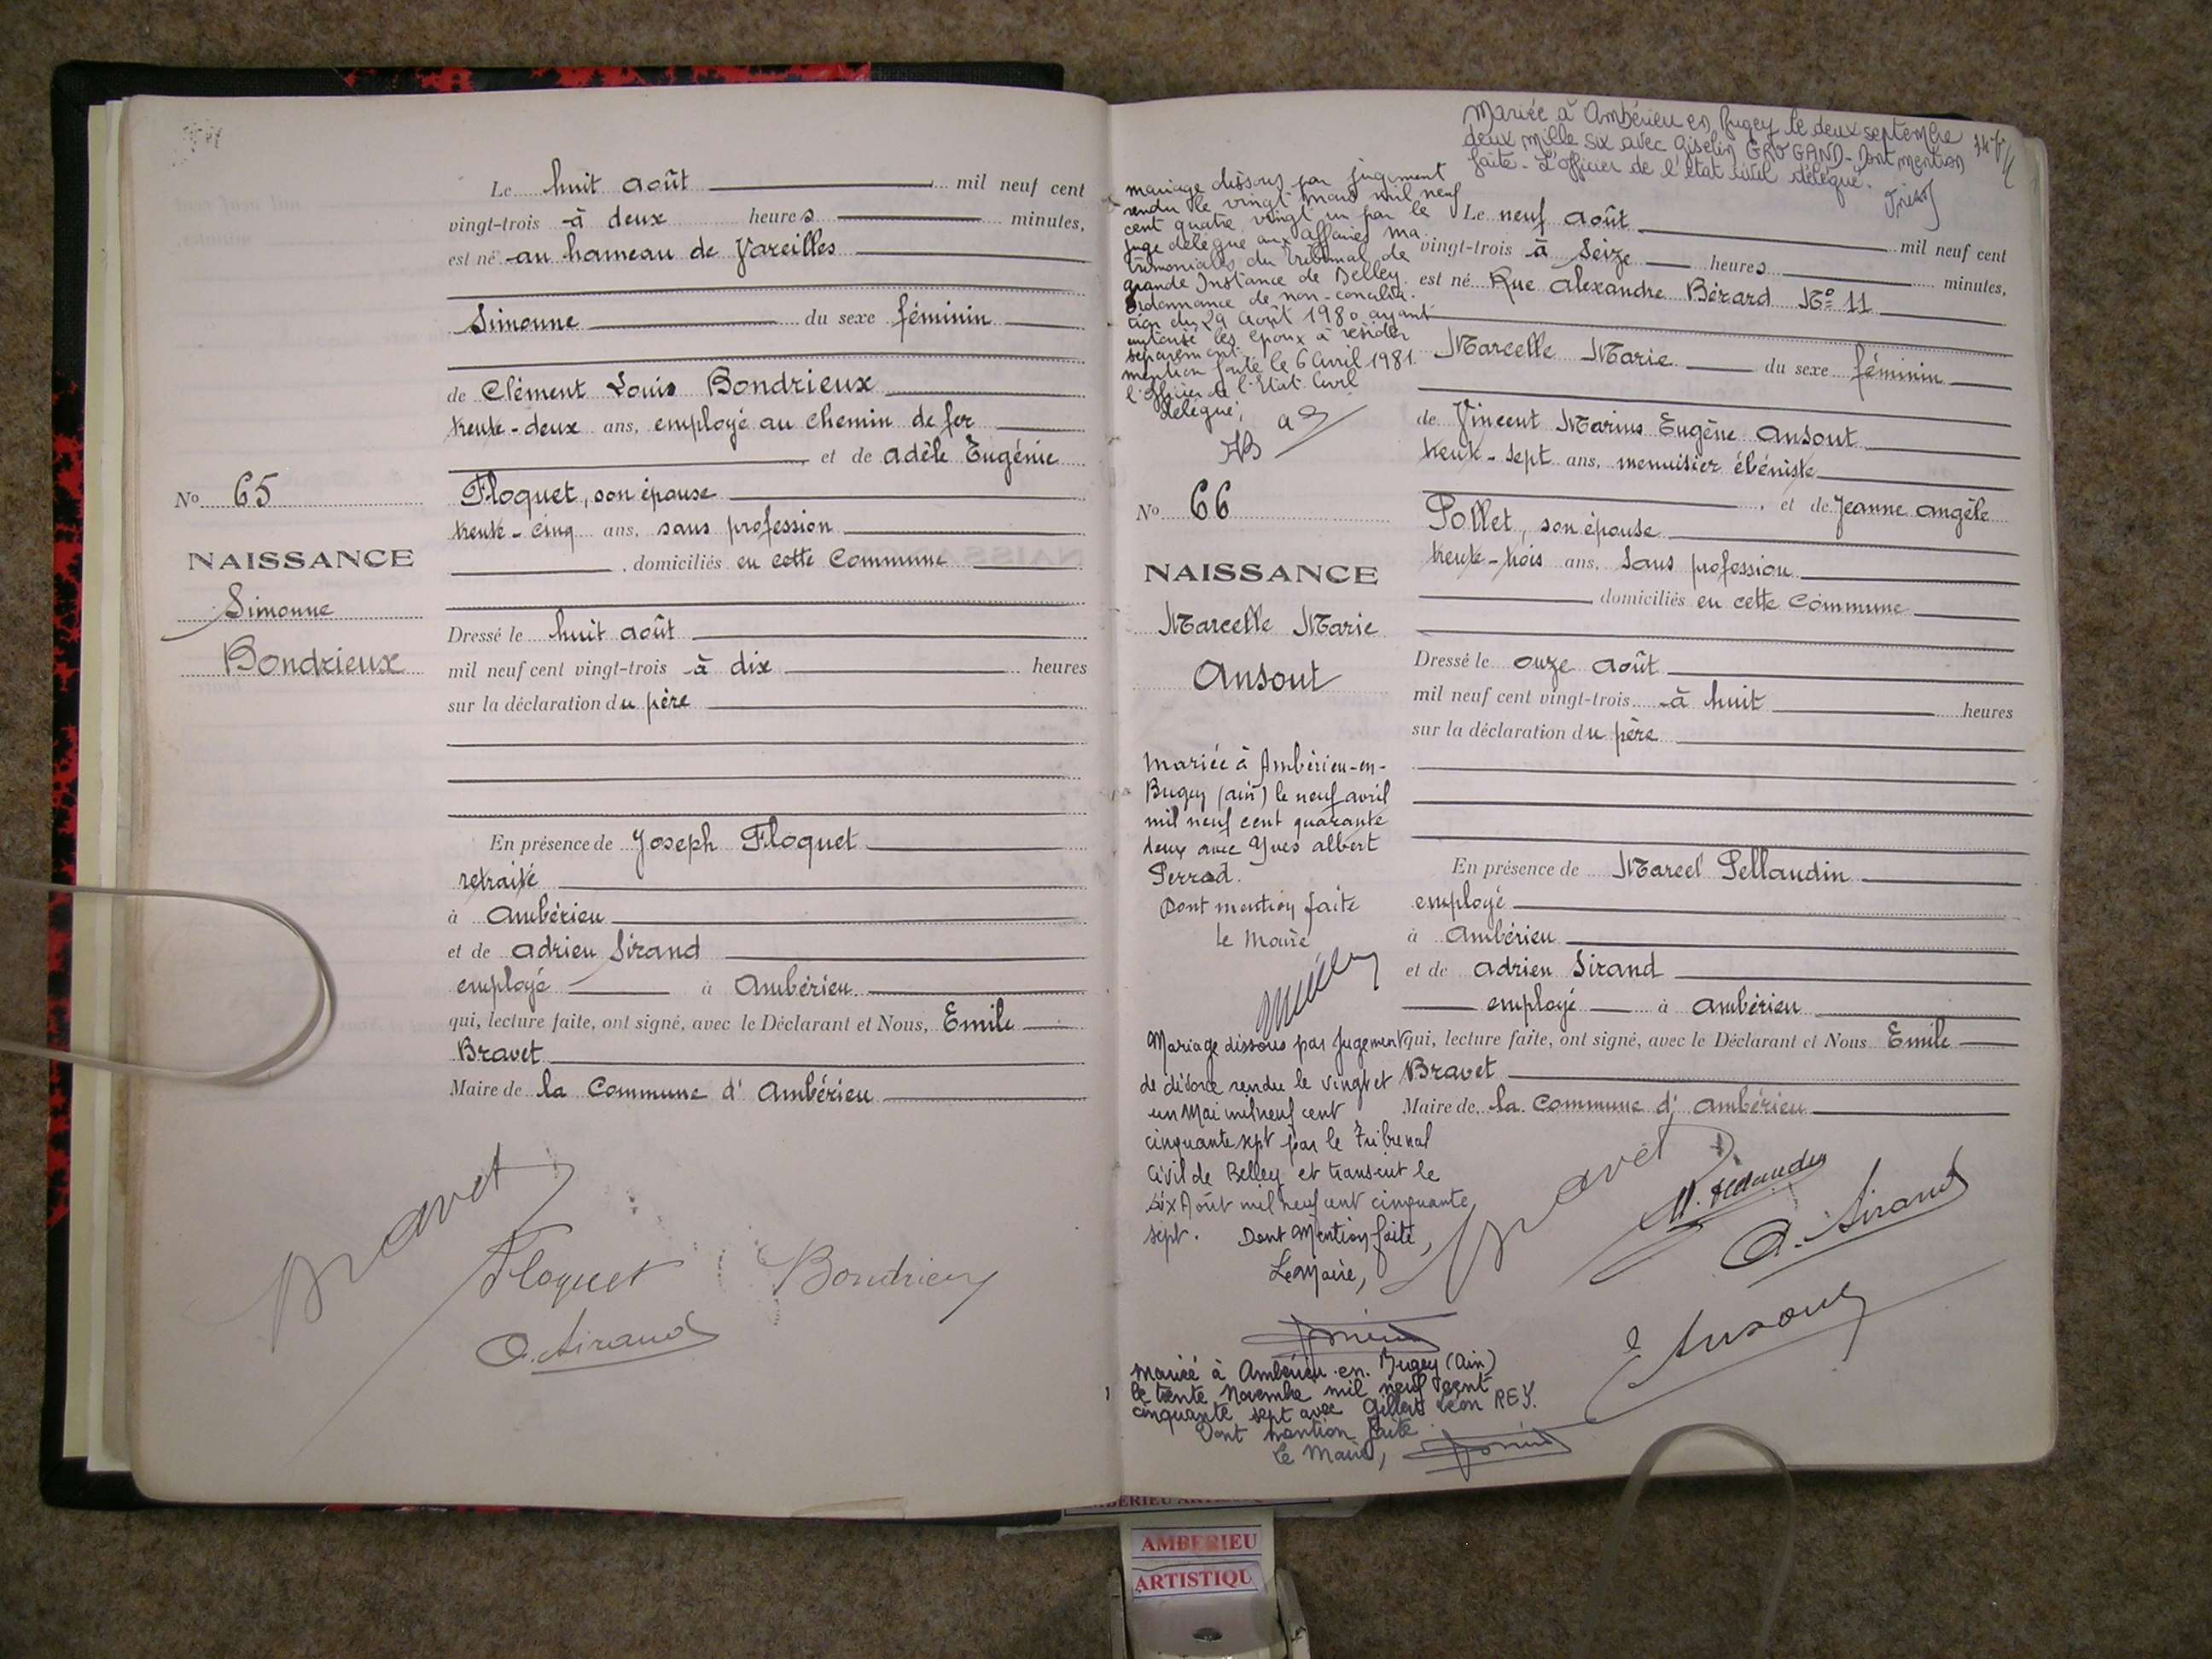 Le huit août mil neuf cent
vingt-trois à deux heures minutes,
est né au hameau de Vareilles
Simonne du sexe féminin
de Clément Louis Bondrieux
trente-deux ans, employé au chemin de fer
et de Adèle Eugénie
Floquet, son épouse
trente-cinq ans, sans profession
, domiciliés en cette Commune
No 65
NAISSANCE
Simonne
Bondrieux
Dressé le huit août
mil neuf cent vingt-trois à dix heures
sur la déclaration du père
En présence de Joseph Floquet
retraité
à Ambérieu
et de Adrien Sirand
employé à Ambérieu
qui, lecture faite, ont signé, avec le Déclarant et Nous, Emile
Bravet
Maire de la Commune d'Ambérieu
Bravet
Floquet
Bondrieux
A. Sirand
Mariée à Ambérieu en Bugey le deux septembre
deux mille six avec Giselin GROGAND - Dont mention
faite - L'officier de l'état civil délégué.
mariage dissous par jugement
rendu le vingt mars mil neuf
cent quatre vingt un par le
juge délégué aux affaires ma
trimoniales du Tribunal de
grande Instance de Belley
ordonnance de non-concilia-
tion du 29 Août 1980 ayant
autorisé les époux à résider
séparément.
mention faite le 6 Avril 1981
l'Officier de l'Etat Civil
délégué,
Le neuf août mil neuf cent
vingt-trois à seize heures minutes,
est né Rue Alexandre Bérard No 11
Marcelle Marie du sexe féminin
de Vincent Marius Eugène Ansout
trente-sept ans, menuisier ébéniste
, et de Jeanne Angèle
Pollet, son épouse
trente-trois ans, sans profession
domiciliés en cette Commune
No 66
NAISSANCE
Marcelle Marie
Ansout
Dressé le onze août
mil neuf cent vingt-trois à huit heures
sur la déclaration du père
En présence de Marcel Pellaudin
employé
à Ambérieu
et de Adrien Sirand
employé à Ambérieu
qui, lecture faite, ont signé, avec le Déclarant et Nous Emile
Bravet
Maire de la Commune d'Ambérieu
mariée à Ambérieu-en-
Bugey (ain) le neuf avril
mil neuf cent quarante
deux avec Yves albert
Perrod.
Dont mention faite
le Maire
Mariage dissous par Jugement
de divorce rendu le vingt et
un Mai mil neuf cent
cinquante sept par le Tribunal
Civil de Belley et transcrit le
six Août mil neuf cent cinquante
sept. Dont Mention faite,
Le Maire,
Mariée à Ambérieu-en-Bugey (Ain)
le trente Novembre mil neuf cent
cinquante sept avec Gilbert Léon REY.
Dont mention faite
Le Maire,
Bravet
A. Sirand
Ansout
AMBERIEU
ARTISTIQU